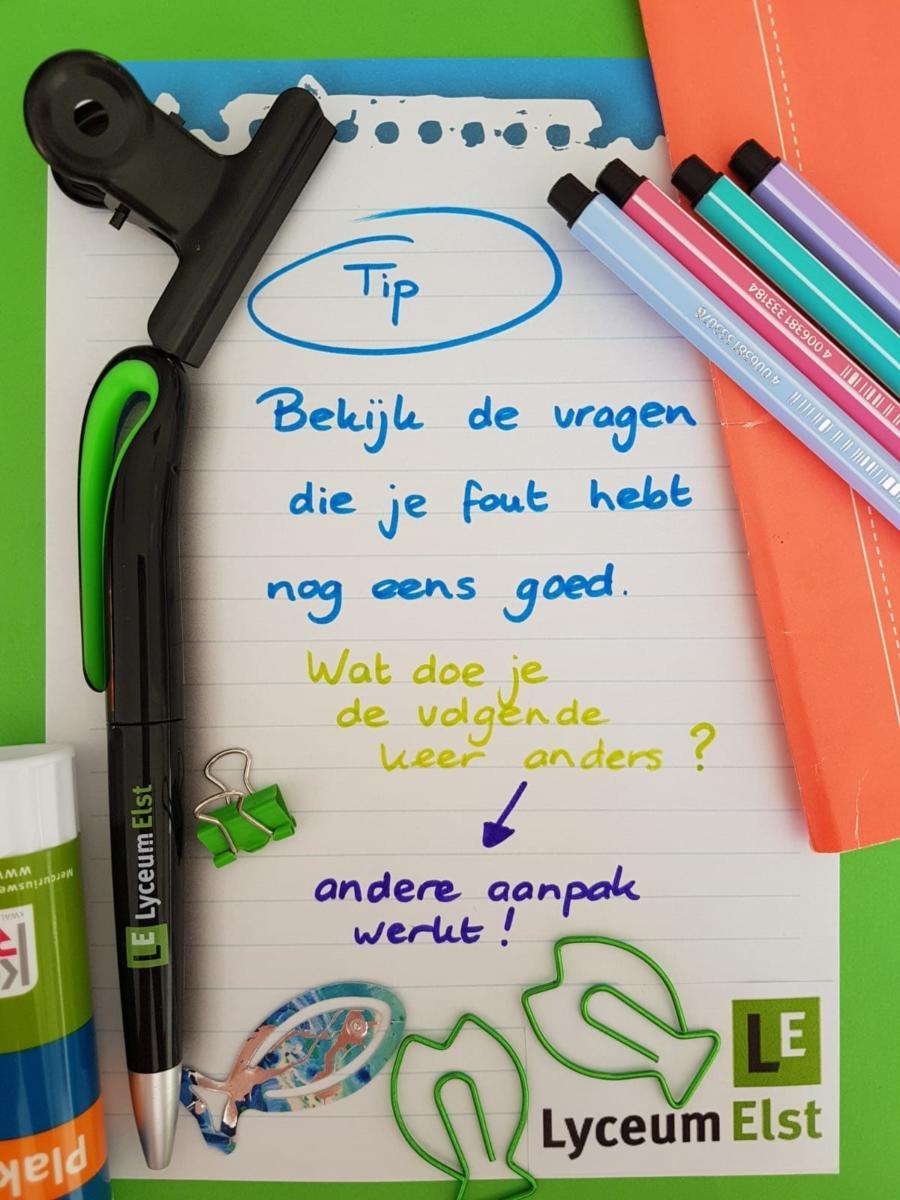 Tip
Bekijk de vragen
die je fout hebt
nog eens goed.
Wat doe je
de volgende
keer anders ?
andere aanpak
werkt !
LE Lyceum Elst
LE
Lyceum Elst
4 006381 333184
Plak